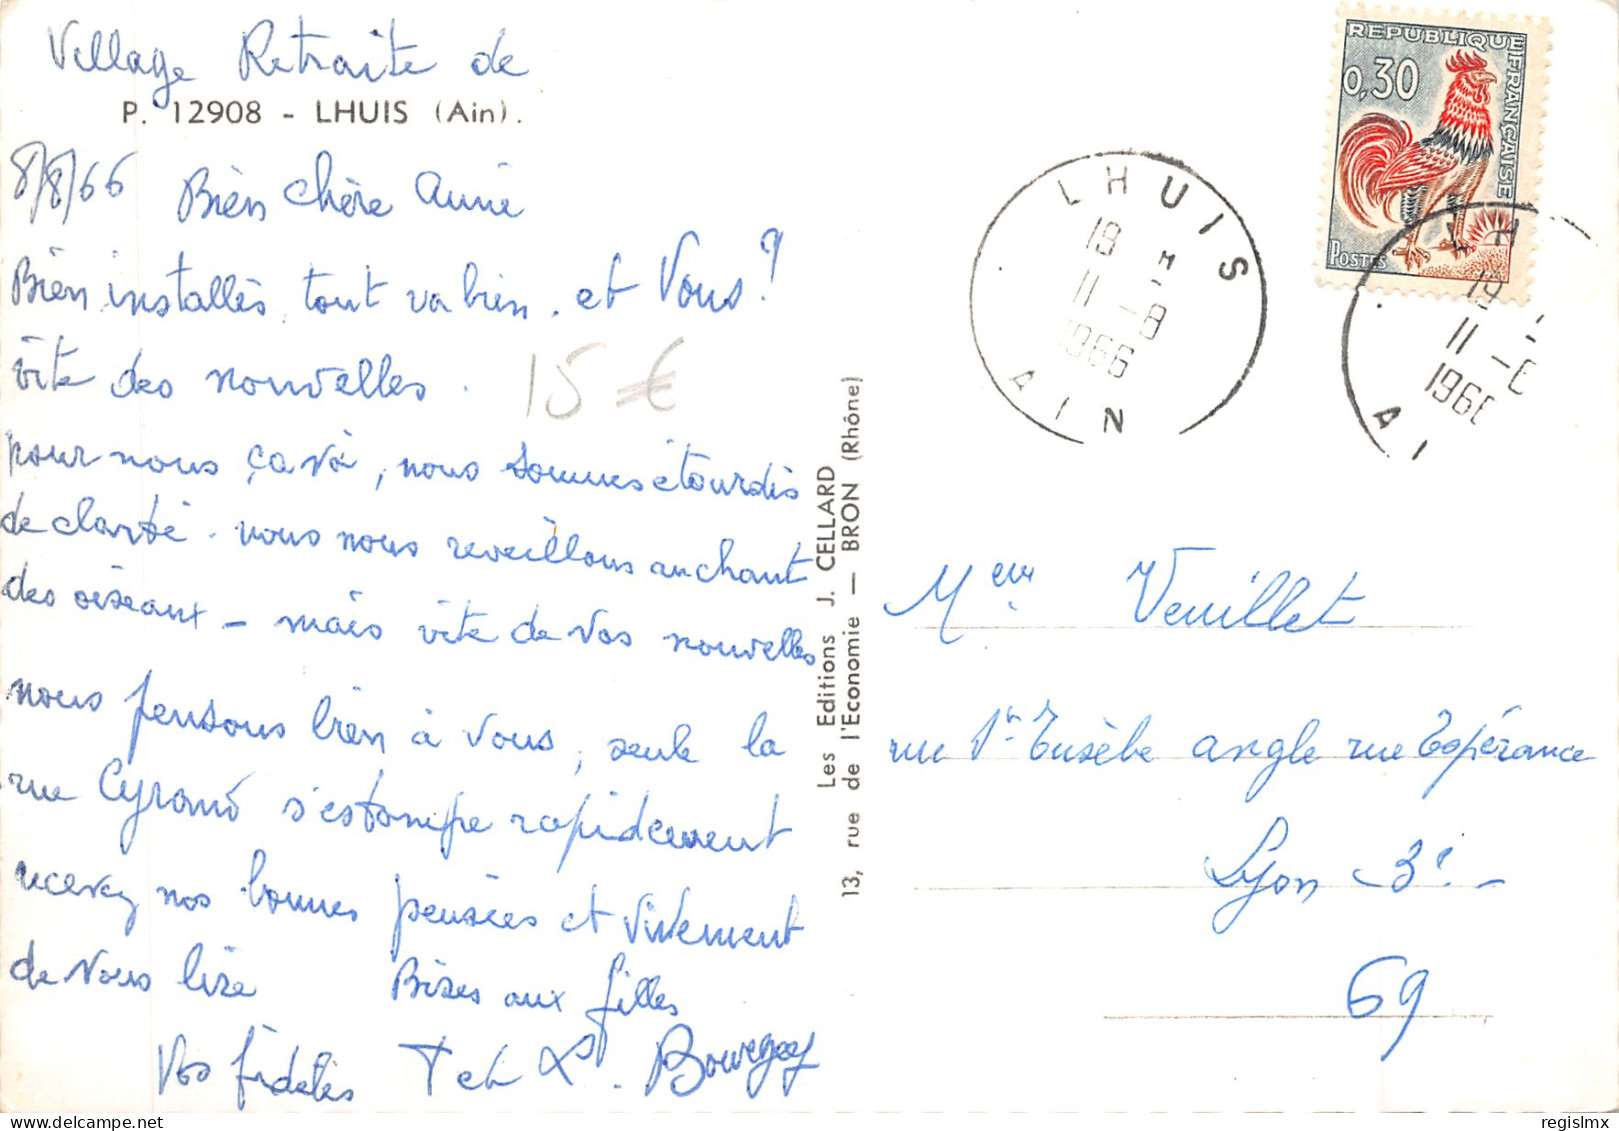 Village Retraite de
P. 12908 - LHUIS (Ain).
8/8/66 Bien chère Annie
Bien installés, tout va bien. et Vous ?
vite des nouvelles.
15 €
pour nous ça va, nous sommes étourdis
de clarté. nous nous reveillons au chant
des oiseaux - mais vite de vos nouvelles
nous pensons bien à vous, seule la
rue Cyrano s'estompe rapidement
recevez nos bonnes pensées et vivement
de vous lire Bises aux filles
Vos fidèles T et Bourgey
Les Editions J. CELLARD
13, rue de l'Economie — BRON (Rhône)
REPUBLIQUE FRANÇAISE
0,30
POSTES
LHUIS
18 H
11 -8
1966
AIN
LH
18
11 -8
196
AI
Veuillet
rue St Eusèbe angle rue Espérance
Lyon 3e -
69
© regislmx